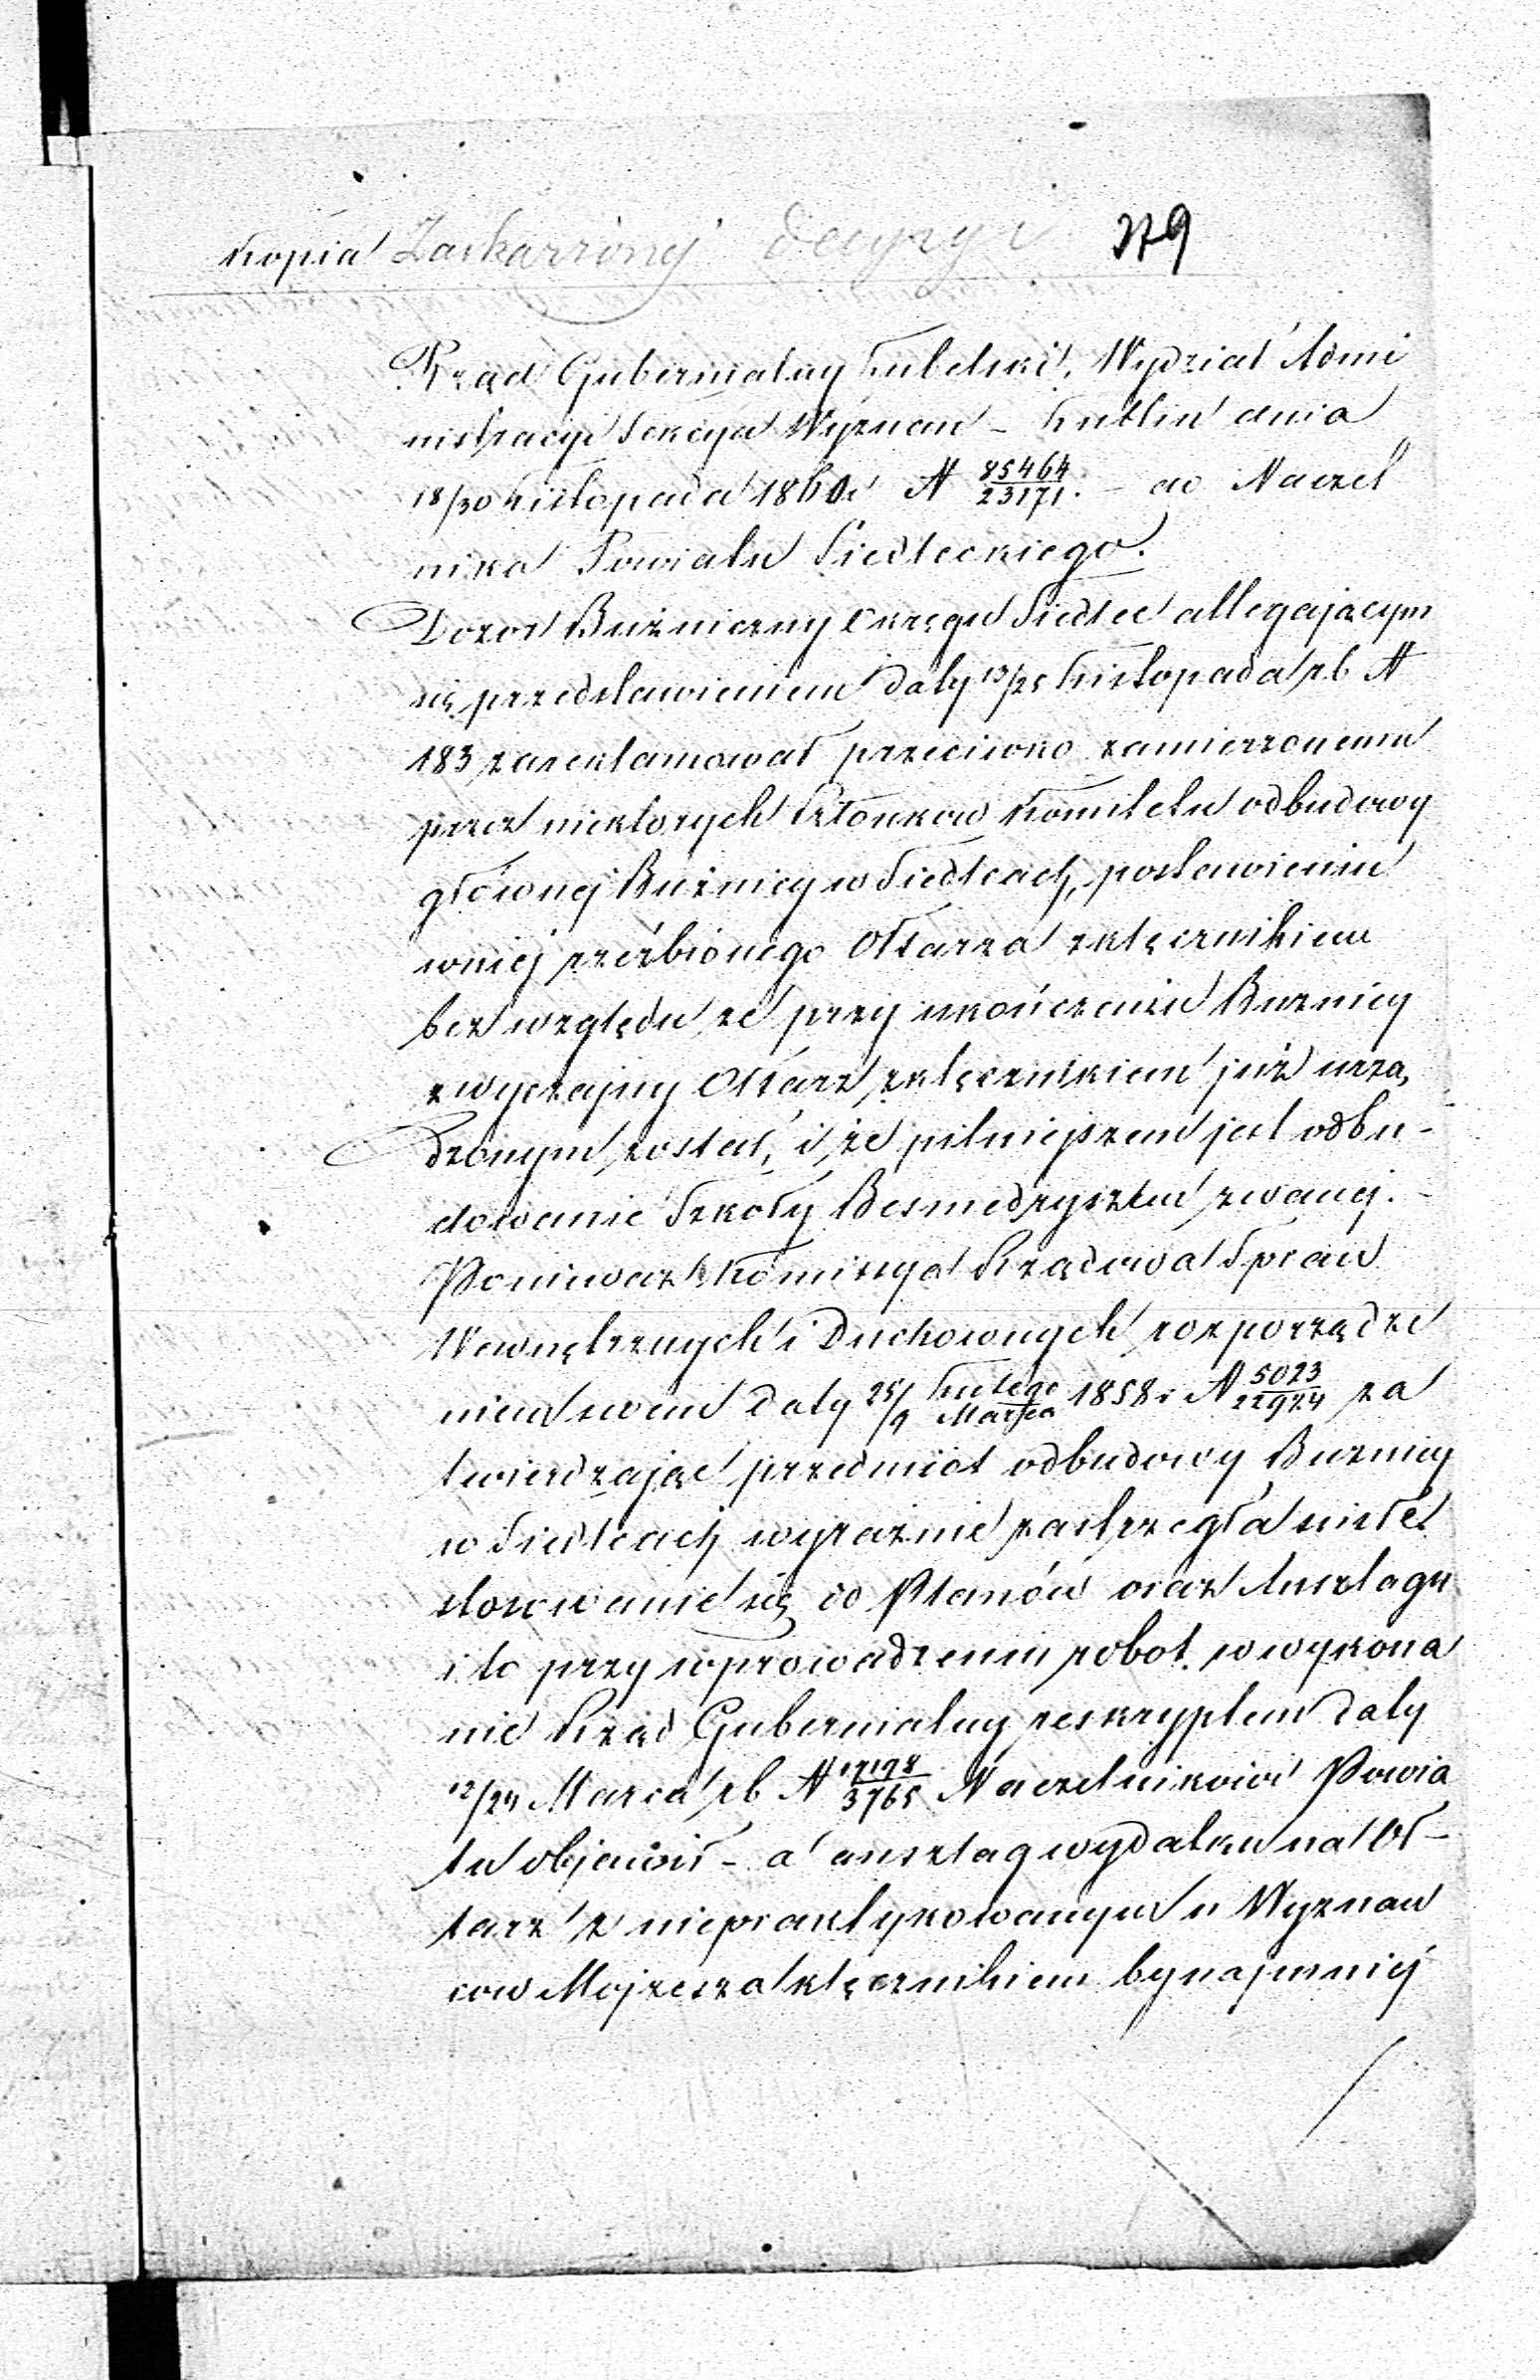 Kopia Zaskarżonej decyzyi 379
Rząd Gubernialny Lubelski, Wydział Admi
nistracyi Sekcya Wyznań – Lublin dnia
18/30 Listopada 1860 r N 85464/23171. – do Naczel
nika Powiatu Siedleckiego.
Dozór Bużniczny Okręgu Siedlec allegającym
się przedstawieniem daty 13/25 Listopada r.b. N
183 zareklamował przeciwko zamierzonemu
przez niektorych Członkow Komitetu odbudowy
głównej Bużnicy w Siedlcach, postawieniu
wniej rzeźbionego Ołtarza zklęcznikiem
bez względu, że przy ukończeniu Bużnicy
zwyczajny Ołtarz zklęcznikiem już urzą,
dzonym został, i że pilniejszem jest odbu-
dowanie Szkoły Besmedrysztem zwanej. –
Ponieważ Kommisya Rządowa Spraw
Wewnętrznych i Duchownych rozporządze
niem swem daty 25/9 Lutego/Marca 1858 r N 5023/22924 za
twierdzając przedmiot odbudowy Bużnicy
w Siedlcach wyraźnie zastrzegła ścisłe
stosowanie się do Planów oraz Anszlagu
i to przy wprowadzeniu robot w wykona
nie Rząd Gubernialny reskryptem daty
12/24 Marca r.b. N 17198/3765 Naczelnikowi Powia
tu objawił – a anszlag wydatku na Oł-
tarz z niepraktykowanym u Wyznaw
cow Mojżesza klęcznikiem bynajmniej